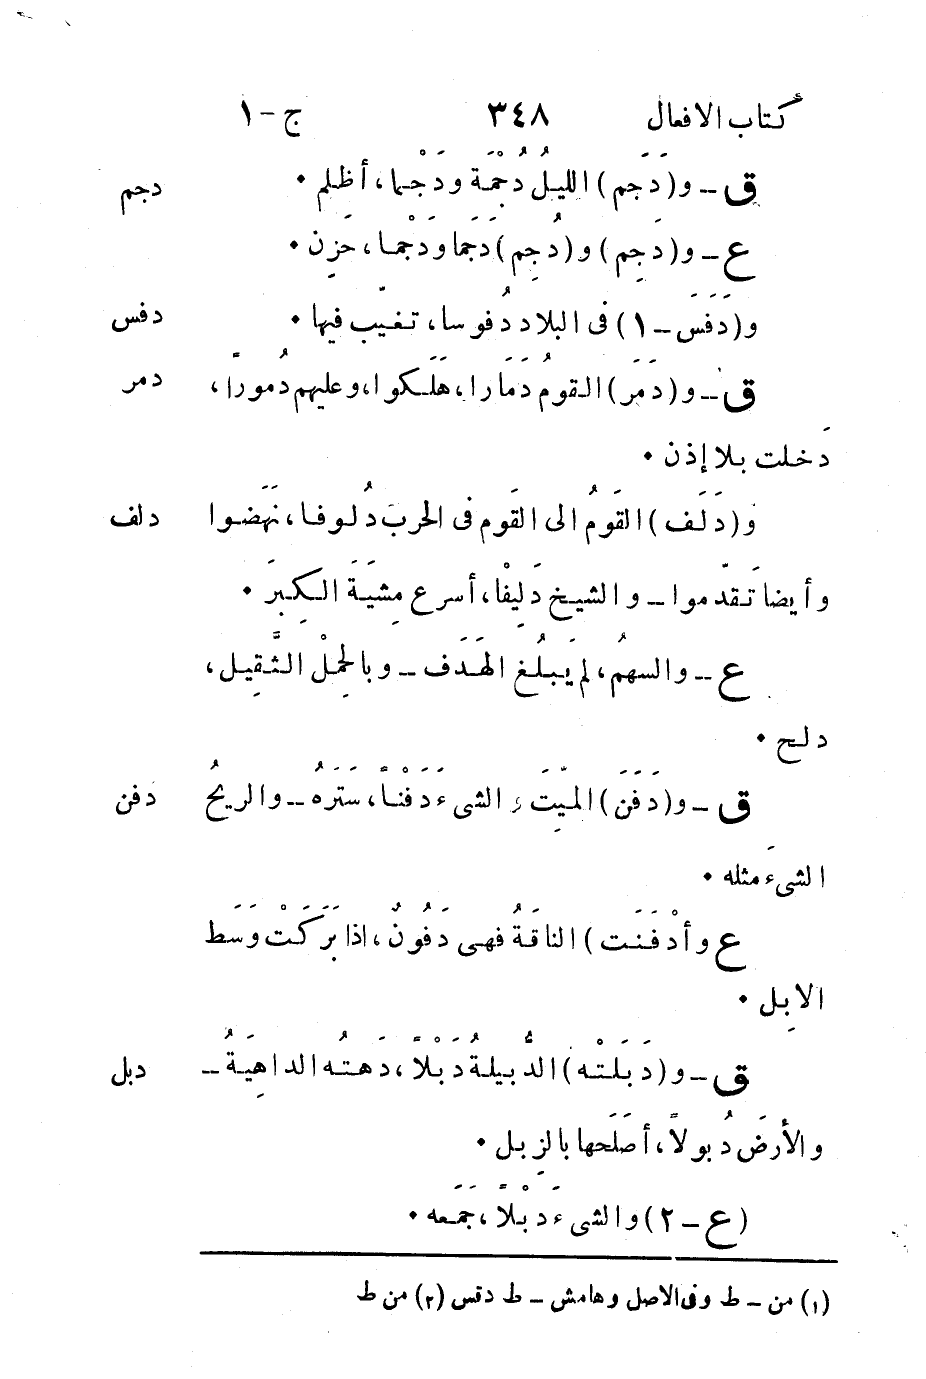 كتاب الافعال ٣٤٨ ج - ١
ق - و (دَجَم) الليلُ دُجْمَة ودَجْما، أظلم • دجم
ع - و (دَجِم) و (دُجِم) دَجَما ودَجْما، حَزِن •
و (دَفَسَ - ١) فى البلاد دُفوسا، تغيّب فيها • دفس
ق - و (دَمَر) القومُ دَمَارا، هَلَكوا، وعليهم دُموراً، دمر
دَخلت بلا إذن •
و (دَلَف) القَومُ الى القَوم فى الحرب دُلوفا، نَهَضوا دلف
وأيضا تَقدّموا - والشيخ دَلِيفْا، أسرع مِشيَةَ الكِبَر •
ع - والسهمُ، لم يَبلُغ الهَدَف - وبالحِمْل الثَّقِيل،
دلح •
ق - و (دَفَنَ) الميّتَ و الشىء دَفْناً، سَتَرَه - والريحُ دفن
الشىءَ مثله •
ع وأدْفَنَت) الناقَةُ فهى دَفُونٌ، اذا بَرَكَتْ وَسَط
الابِل •
ق - و (دَبَلَتْه) الدُّبيلةُ دَبْلاً، دَهتُه الداهِيَةُ - دبل
والأرضَ دُبولاً، أصلَحها بالزِبل •
(ع - ٢) والشىء دَبْلاً، جَمَعه •
(١) من - ط وفى الاصل وهامش - ط دقس (٢) من ط